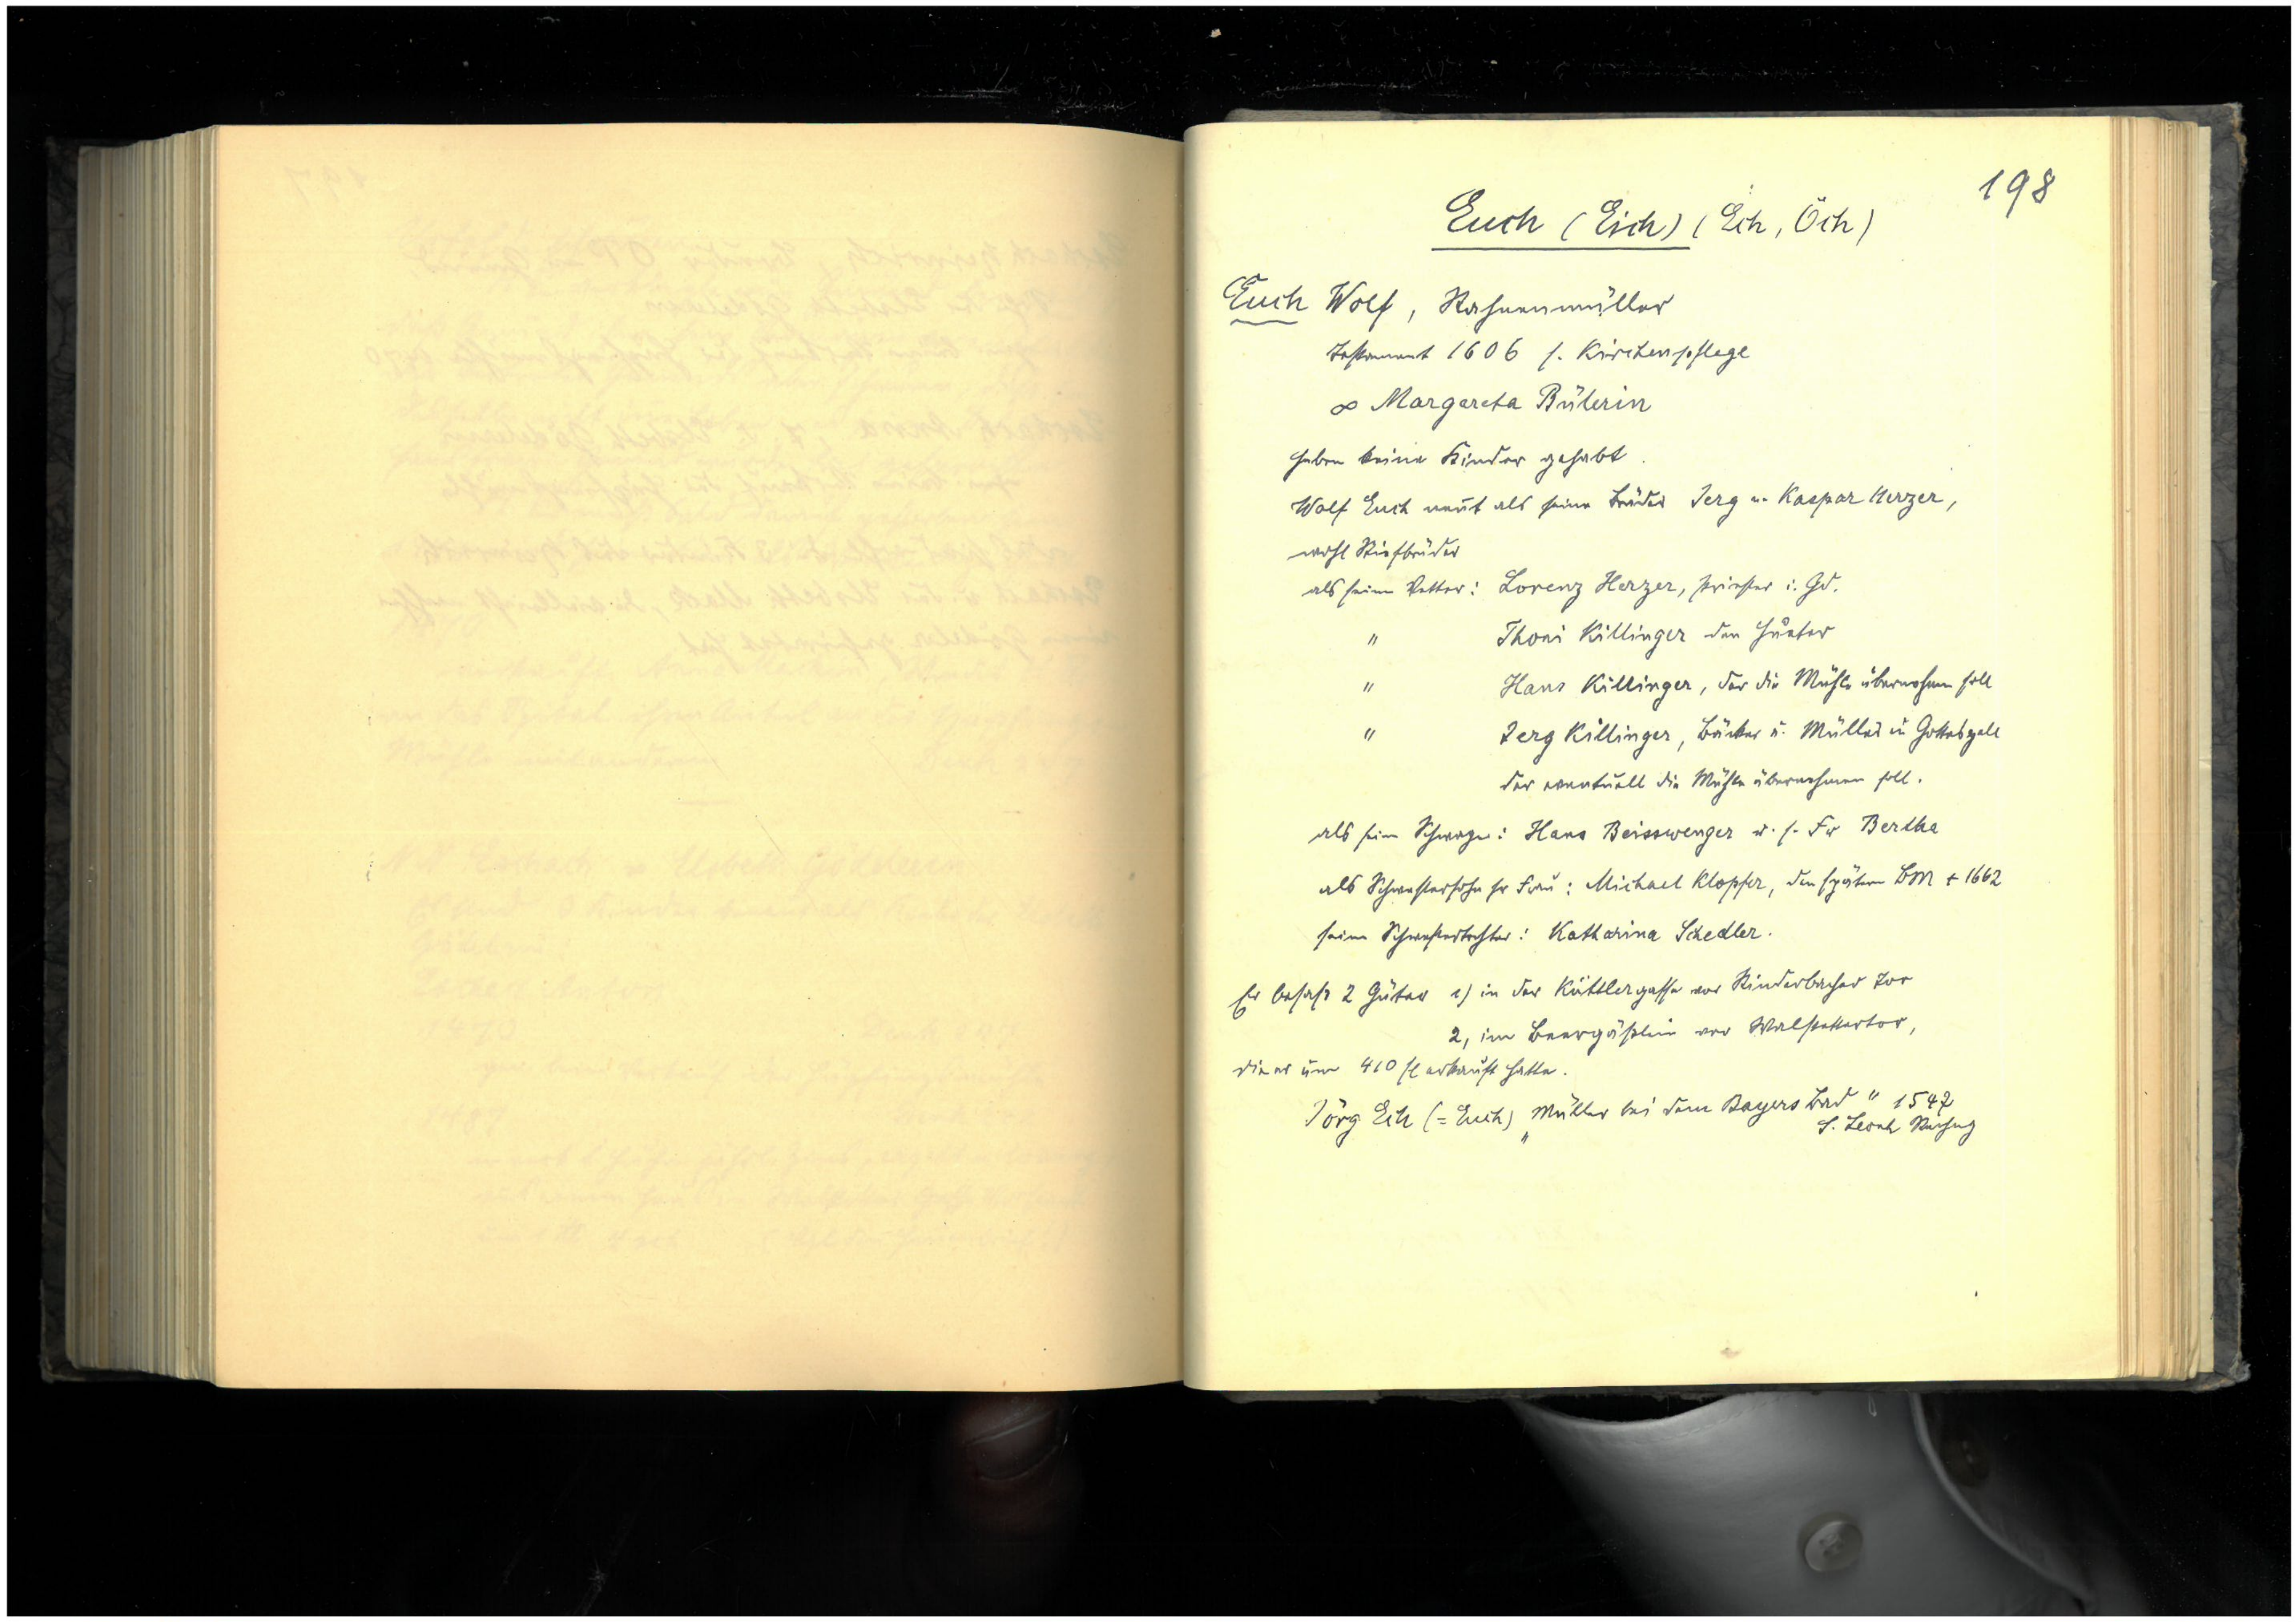 198
Euch (Eich) (Eih, Öih)
Euch Wolf, Rahnenmüller
Testament 1606 s. Kirchenpflege
∞ Margareta Bülerin
haben keine Kinder gehabt.
Wolf Euch nennt als seine Brüder Jerg u. Kaspar Herzer,
wohl Stiefbrüder
als seine Vetter: Lorenz Herzer, Priester i. Gd.
" Thoni Killinger den
" Hans Killinger, der die Mühle übernehmen soll
" Jerg Killinger, Bäcker u. Müller in Gotteszell
der eventuell die Mühle übernehmen soll.
als sein Schwager: Hans Beisswenger u. s. Fr Bertha
als Schwestersohn sr Frau: Michael Klopfer, den spätern BM + 1662
seine Schwestertochter: Katharina Schedler.
Er besass 2 Güter 1) in der Küttlergasse vor Rinderbacher Tor
2, im gässlein vor Walstettertor,
die er um 410 fl erkauft hatte.
Jörg Eih (= Euch) "Müller bei dem Bayers Bad" 1547
S. Leonh